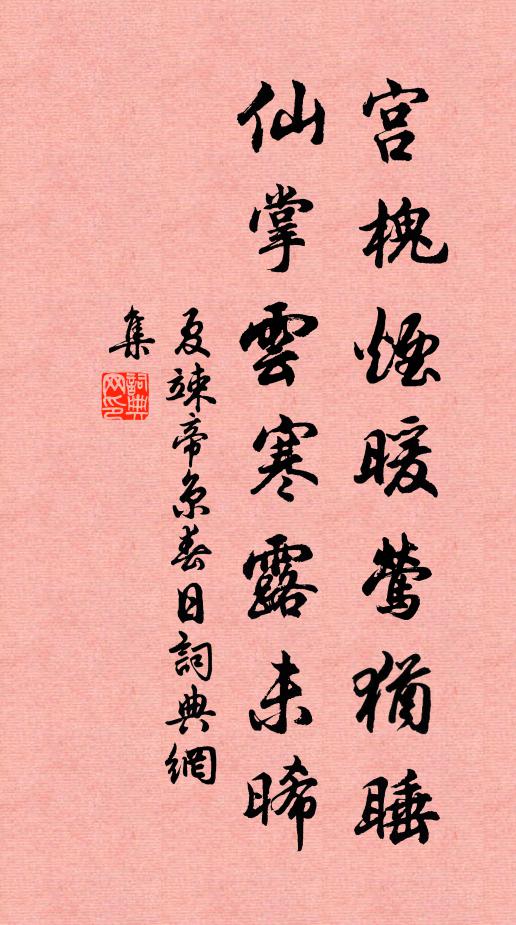 宮槐煙暖鶯猶睡
仙掌雲寒露未晞
夏竦帝京春日詞典網
集
詞典
网印